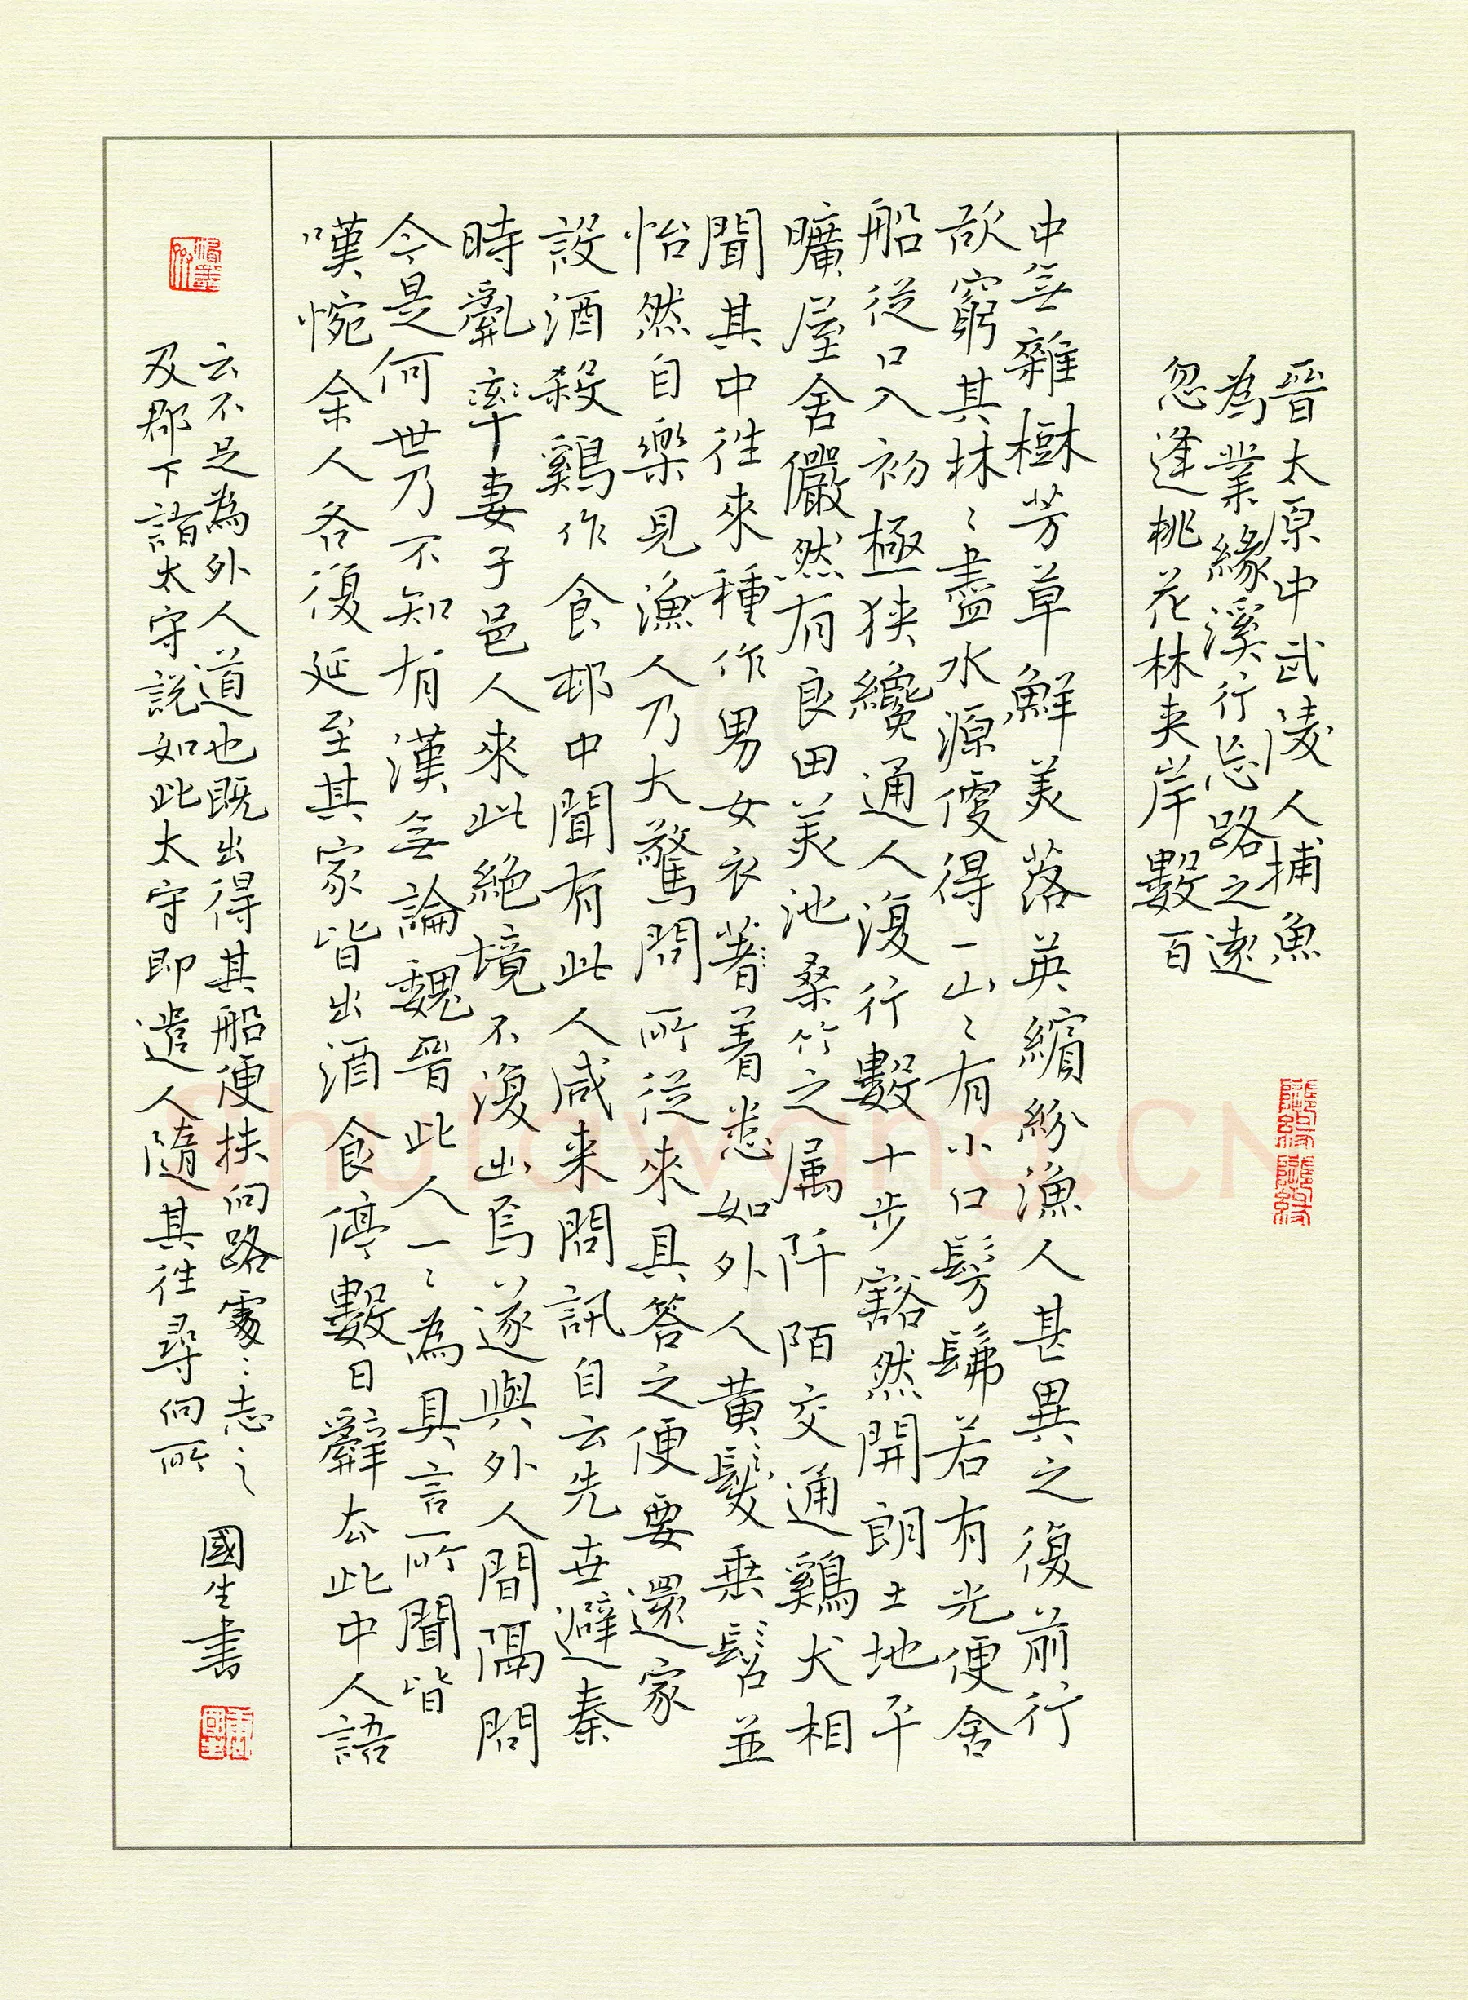 晉太原中武陵人捕魚
為業緣溪行忘路之遠
忽逢桃花林夹岸數百
中無雜樹芳草鮮美落英繽紛漁人甚異之復前行
欲窮其林〻盡水源便得一山〻有小口髣髴若有光便舍
船從口入初極狹纔通人復行數十步豁然開朗土地平
曠屋舍儼然有良田美池桑竹之属阡陌交通鷄犬相
聞其中往來種作男女衣著着悉如外人黄髮垂髫並
怡然自樂見漁人乃大驚問所從來具答之便要還家
設酒殺鷄作食邨中聞有此人咸来問訊自云先世避秦
時亂率妻子邑人來此絕境不復出焉遂與外人間隔問
今是何世乃不知有漢無論魏晉此人一〻為具言所聞皆
嘆惋余人各復延至其家皆出酒食停數日辭去此中人語
云不足為外人道也既出得其船便扶向路處〻志之
及郡下詣太守説如此太守即遣人隨其往尋向所
國生書
Shufawang.CN